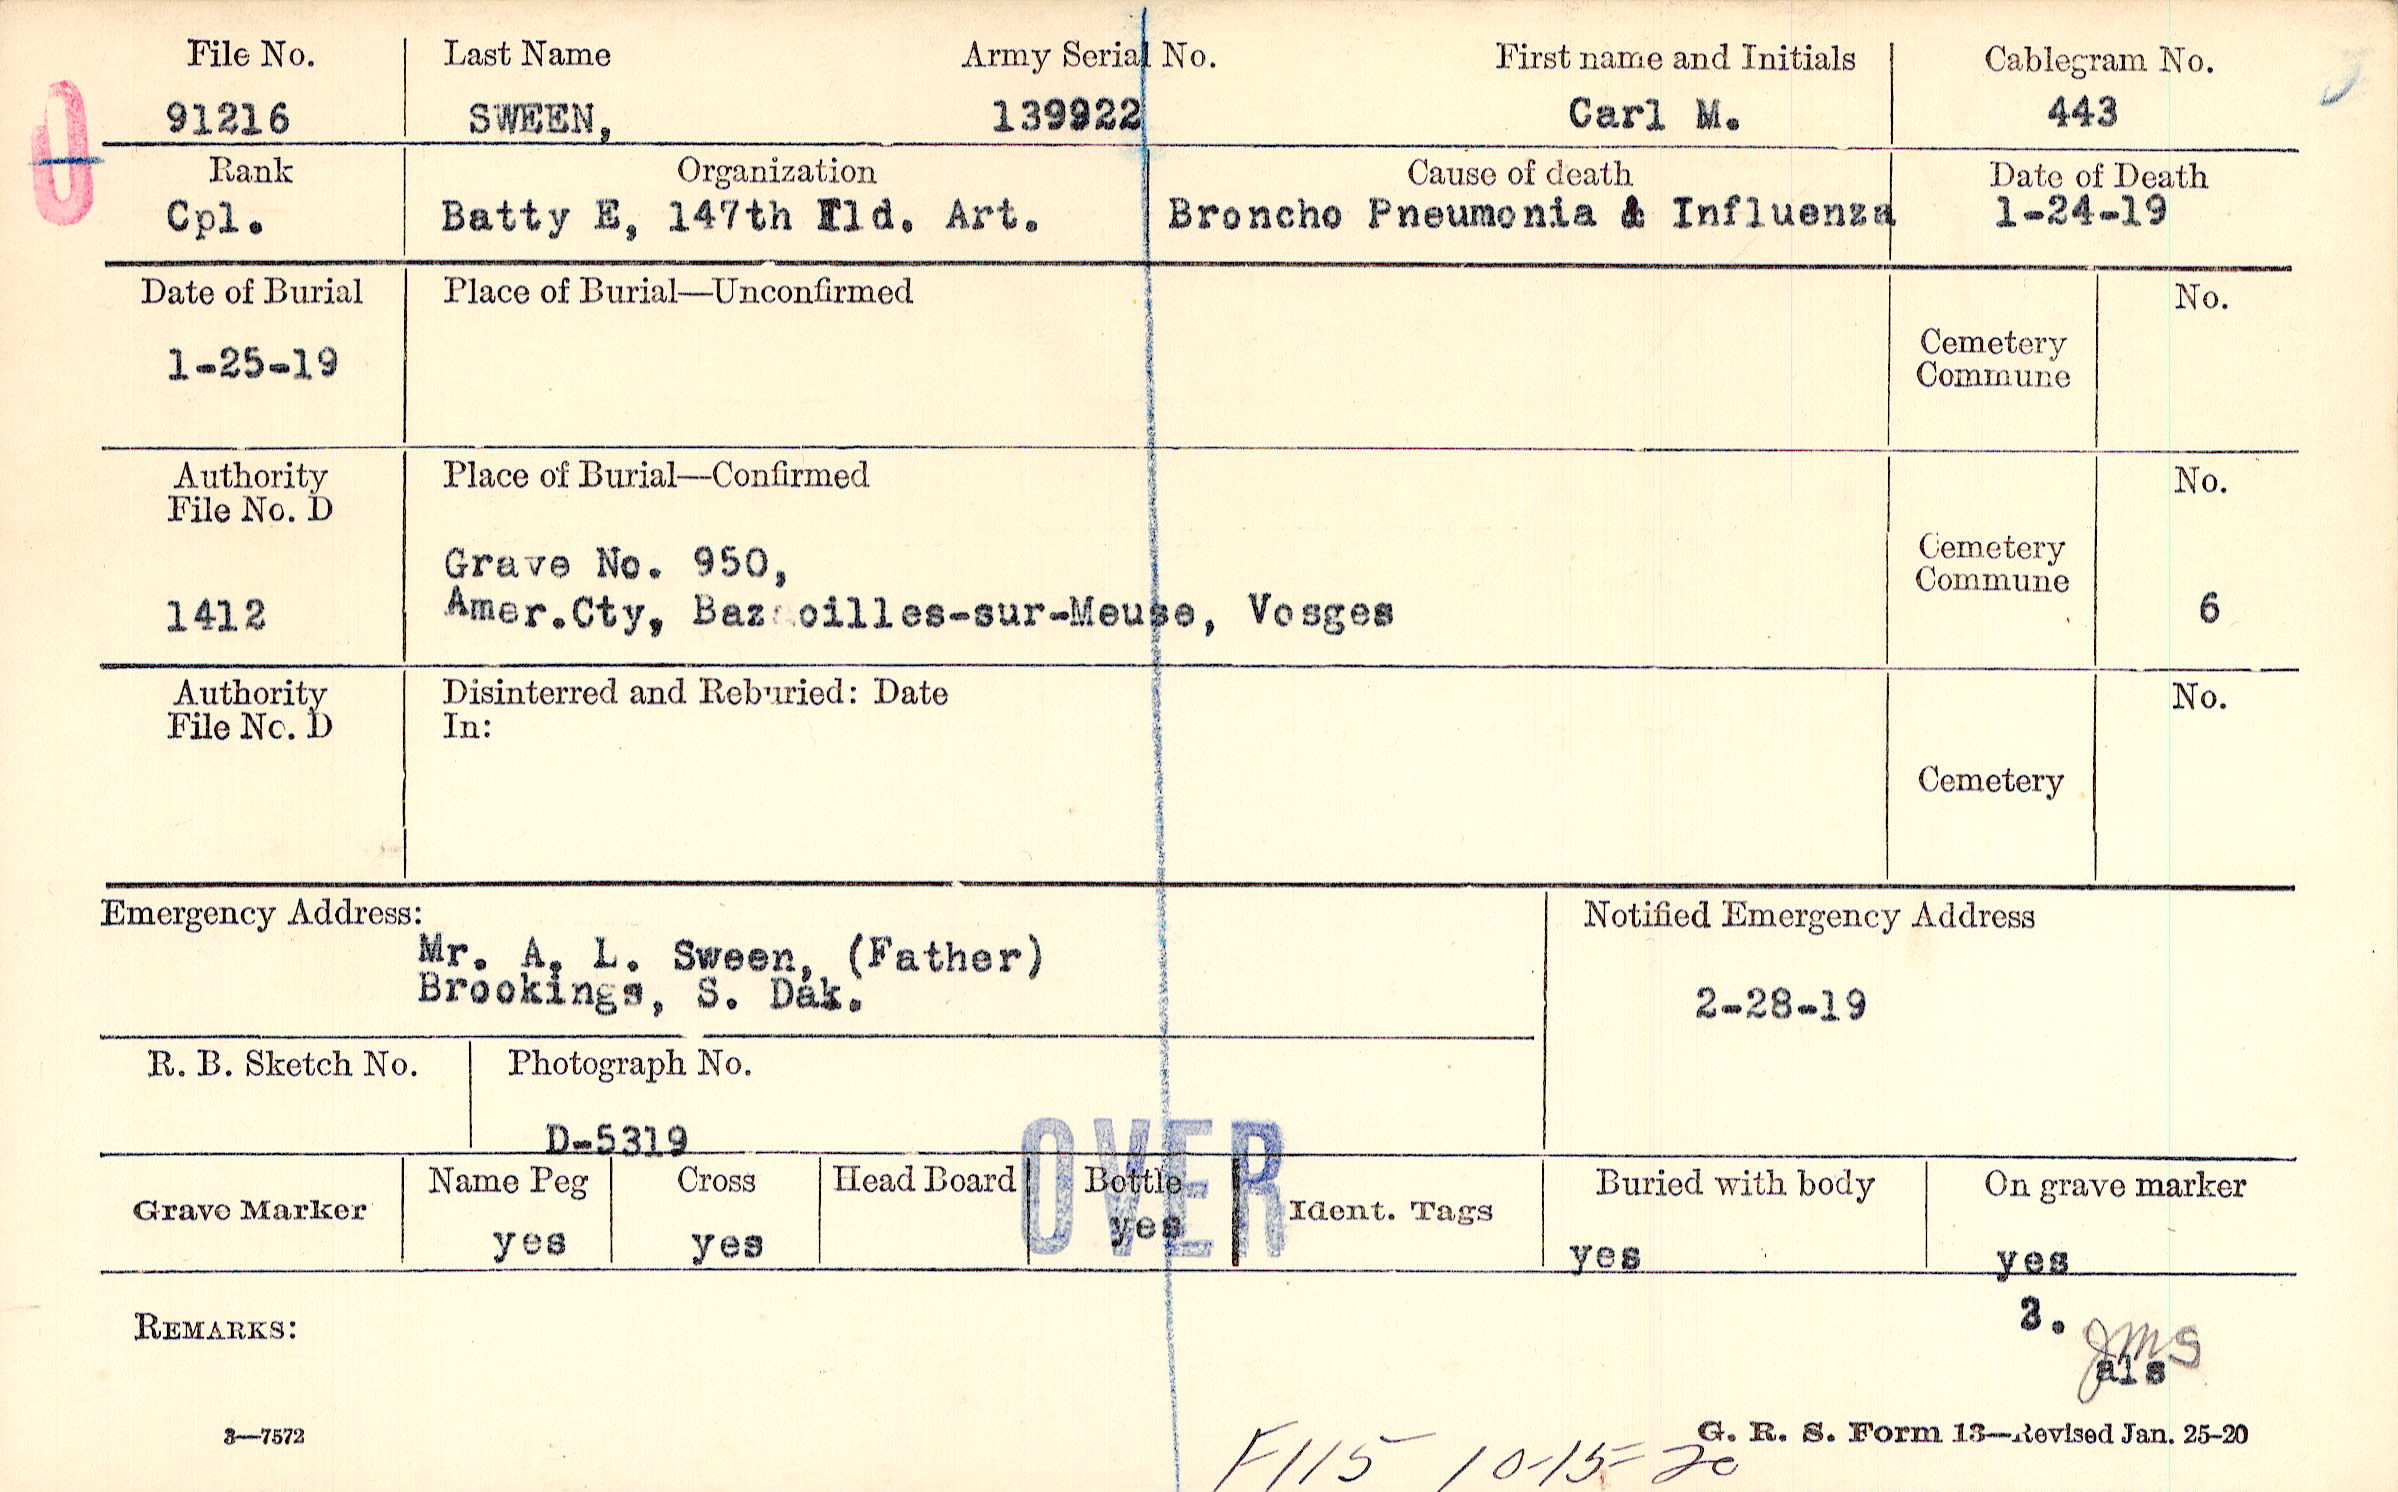 File No. Last Name Army Serial No. First name and Initials Cablegram No.
91216 SWEEN, 139922 Carl M. 443
Rank Organization Cause of death Date of Death
Cpl. Batty E, 147th Fld. Art. Broncho Pneumonia & Influenza 1-24-19
Date of Burial Place of Burial—Unconfirmed No.
1-25-19
Cemetery
Commune
Authority Place of Burial—Confirmed No.
File No. D
Grave No. 950, Cemetery
Commune
1412 Amer.Cty, Baz oilles-sur-Meuse, Vosges 6
Authority Disinterred and Reburied: Date No.
File No. D In:
Cemetery
Emergency Address: Notified Emergency Address
Mr. A. L. Sween, (Father)
Brookings, S. Dak. 2-28-19
R. B. Sketch No. Photograph No.
D-5319
OVER
Grave Marker Name Peg Cross Head Board Bottle Ident. Tags Buried with body On grave marker
yes yes yes yes yes
REMARKS: 3.
JMS
als
3—7572 G. R. S. Form 13—Revised Jan. 25-20
F115 10-15-20